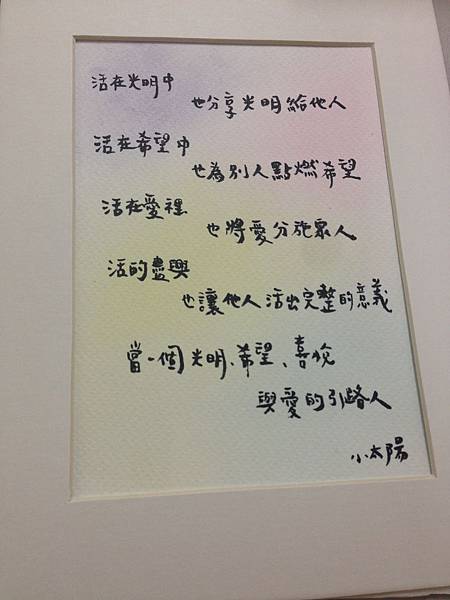 活在光明中
也分享光明給他人
活在希望中
也為別人點燃希望
活在愛裡
也將愛分施眾人
活的豐興
也讓他人活出完整的意義
當一個光明、希望、喜悅
與愛的引路人
小太陽